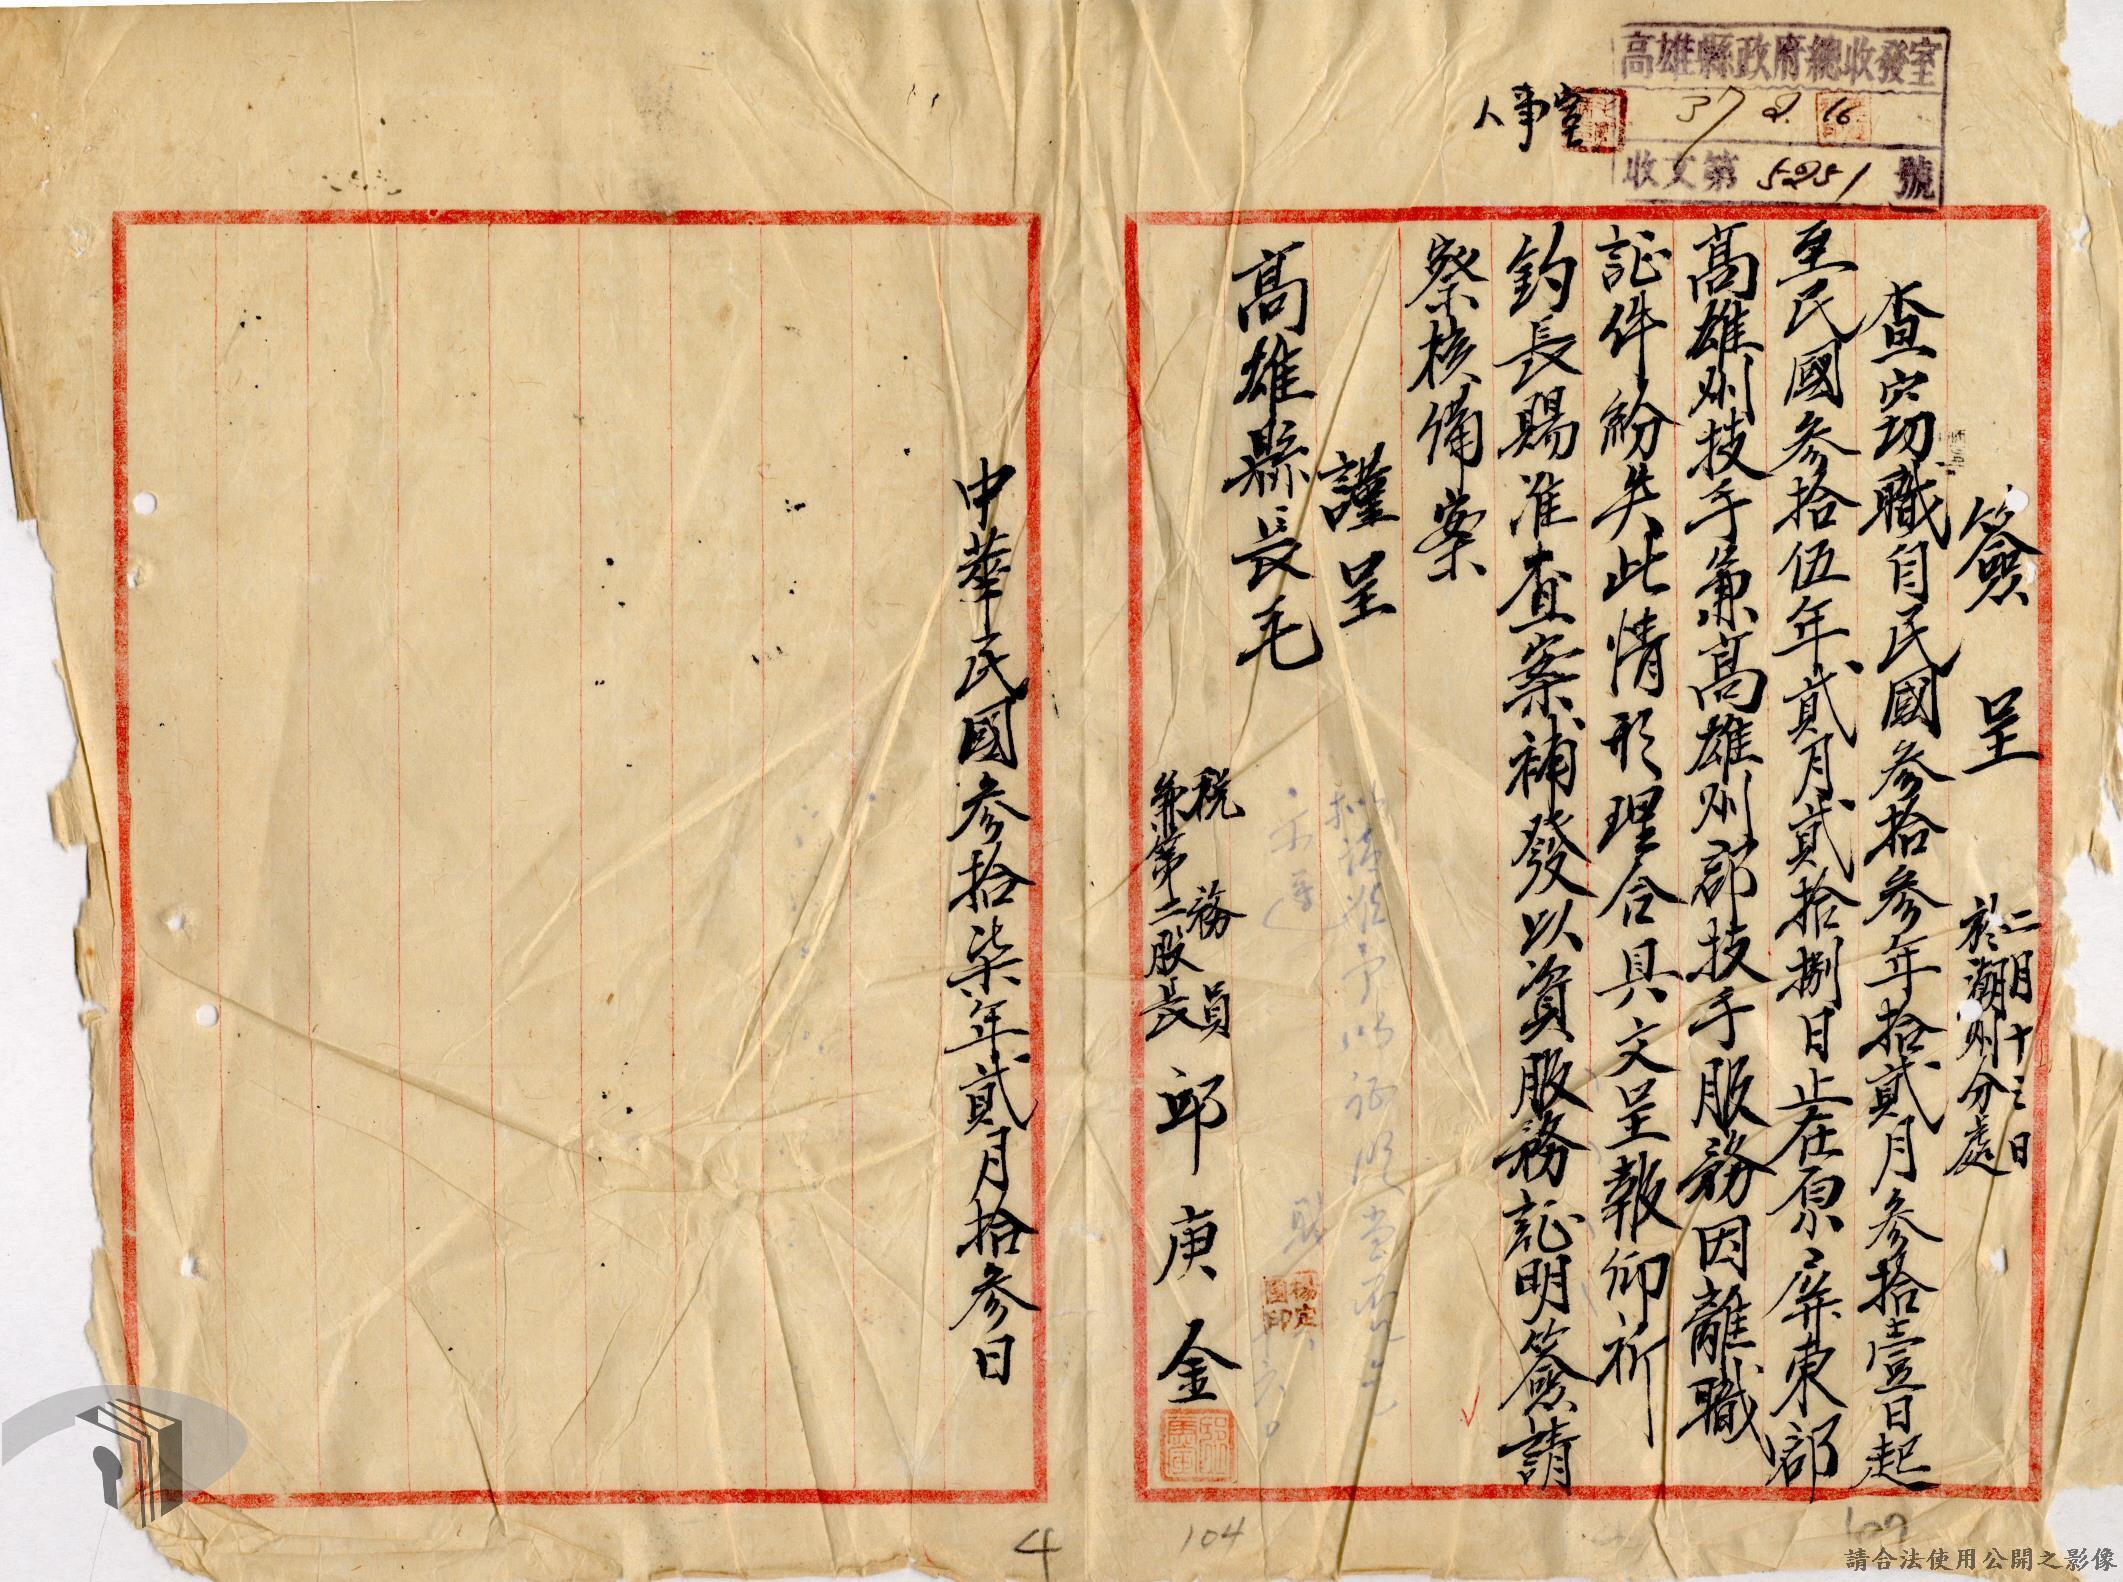 高雄縣政府總收發室
37 2. 16
收文第 5251 號
人事室
簽呈
二月十三日
於潮州分處
查窃職自民國參拾參年拾貳月參拾壹日起
至民國參拾伍年貳月貳拾捌日止在原屏東郡
高雄州技手兼高雄州郡技手服務因離職
証件紛失此情形理合具文呈報仰祈
鈞長賜准查案補發以資服務証明簽請
察核備案
謹呈
高雄縣長毛
稅務員
兼第二股長
邱庚金
楊定國印
中華民國參拾柒年貳月拾參日
4
104
107
請合法使用公開之影像